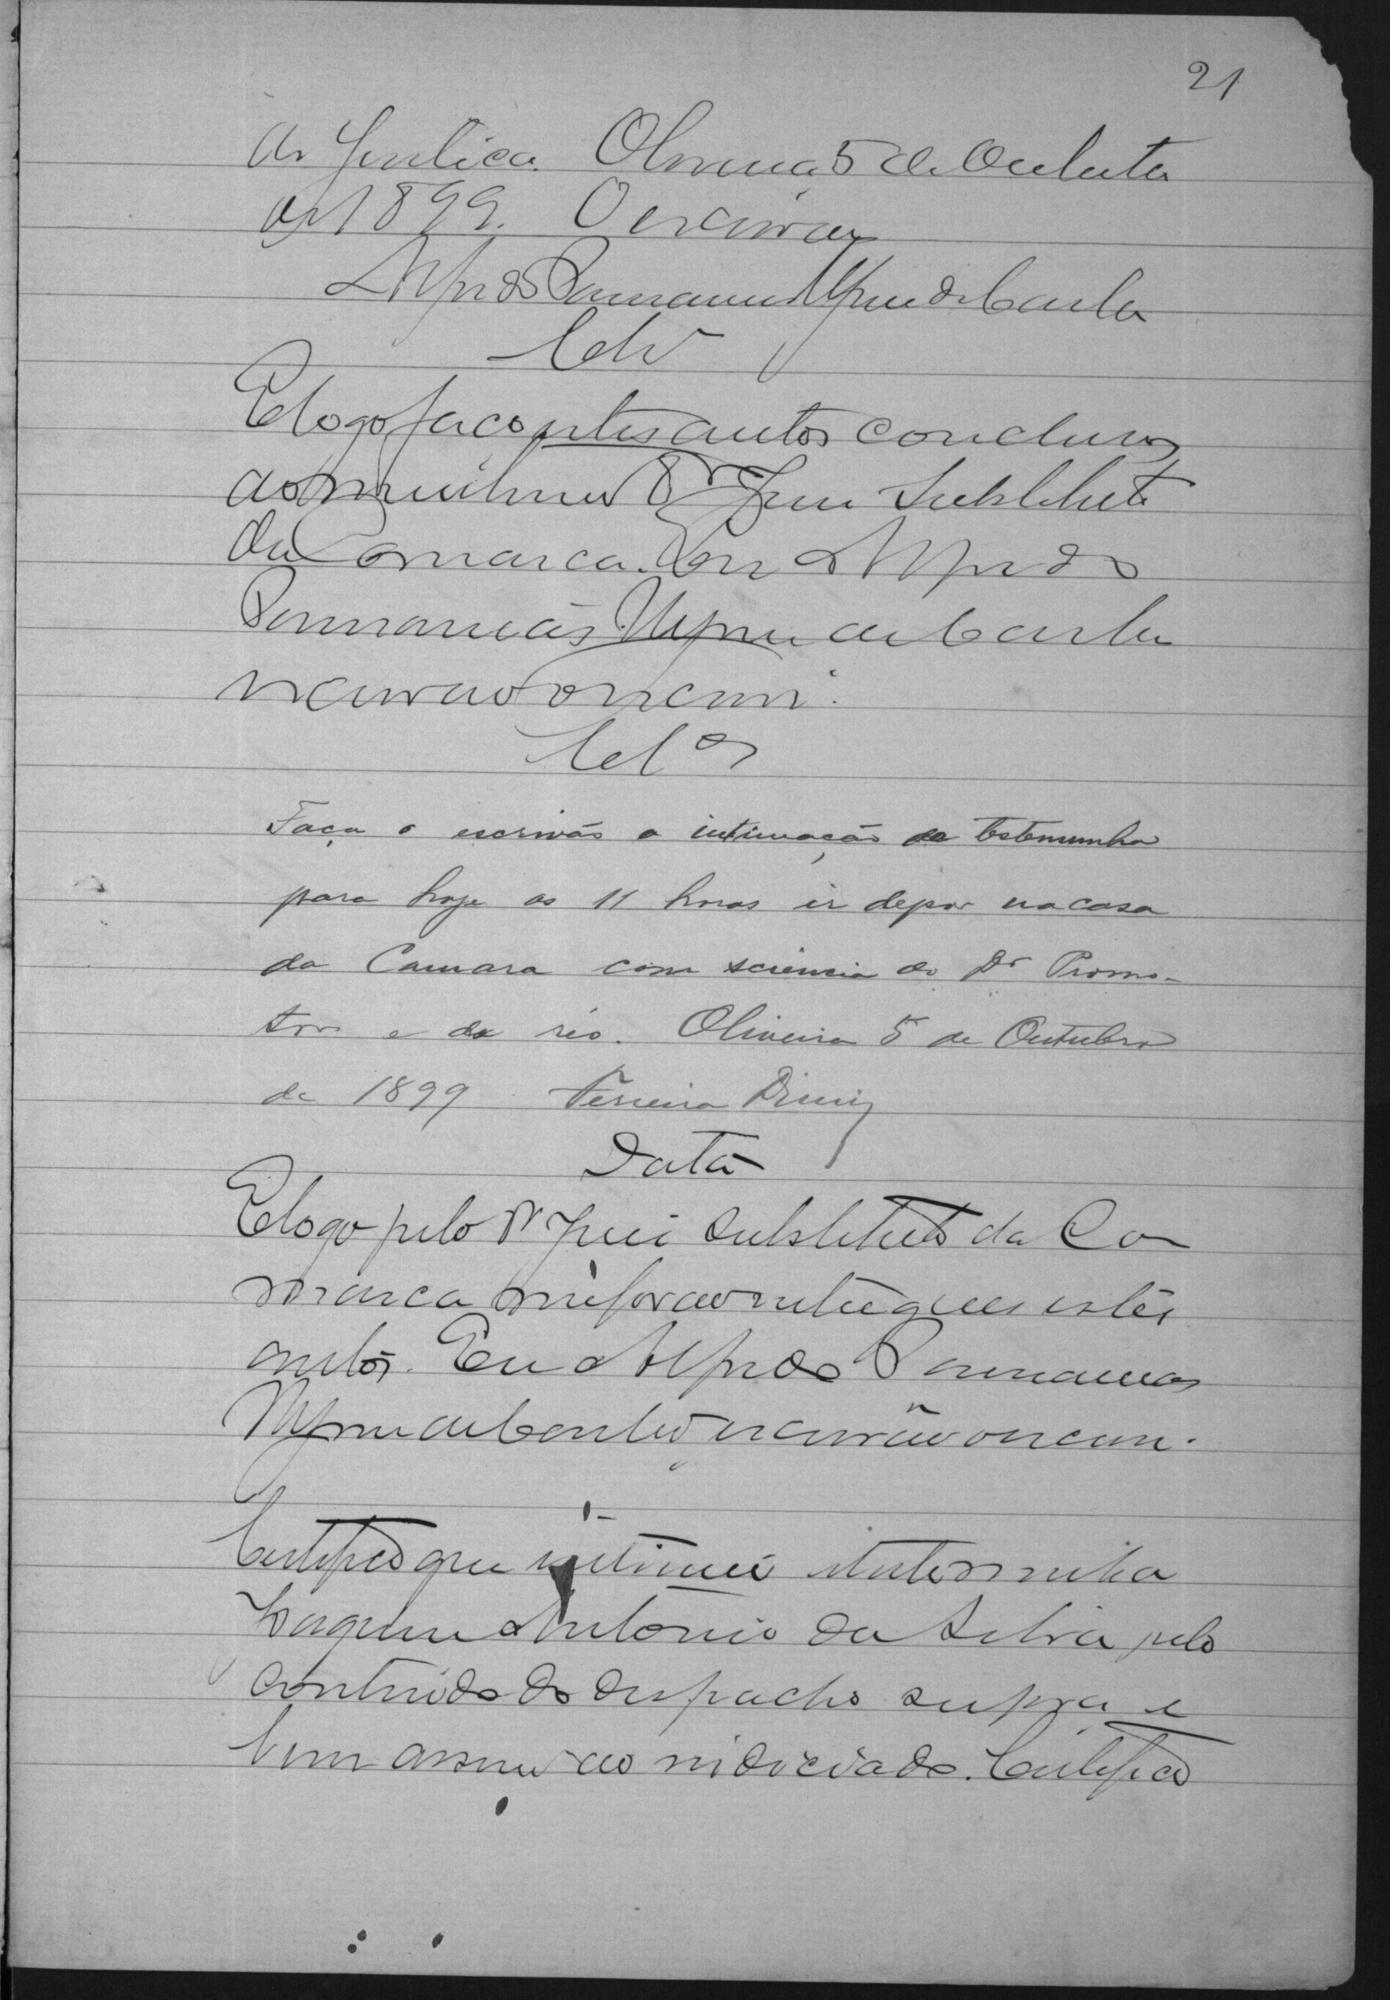 21
da Justiça. Oliveira, 5 de Outubro
de 1899. O escrivão
Alfredo Parnamas de Castro
Clsº
E logo faço estes autos conclusos
ao meritissimo Dr Juiz Substituto
da Comarca. Eu Alfredo
de Castro
escrivão o escrevi.
Clos
Faça o escrivão a intimação da testemunha
para hoje as 11 horas ir depor na casa
da Camara com sciencia do Dr Promo-
tor e do réo. Oliveira 5 de Outubro
de 1899 Ferreira Diniz
Data
E logo pelo Dr Juiz Substituto da Co
marca me forão entregues estes
autos. Eu Alfredo
de Castro escrivão o escrevi.
Certifico que intimei a testemunha
Joaquim Antonio da Silva pelo
conteúdo do despacho supra e
bem assim ao indiciado. Certifico